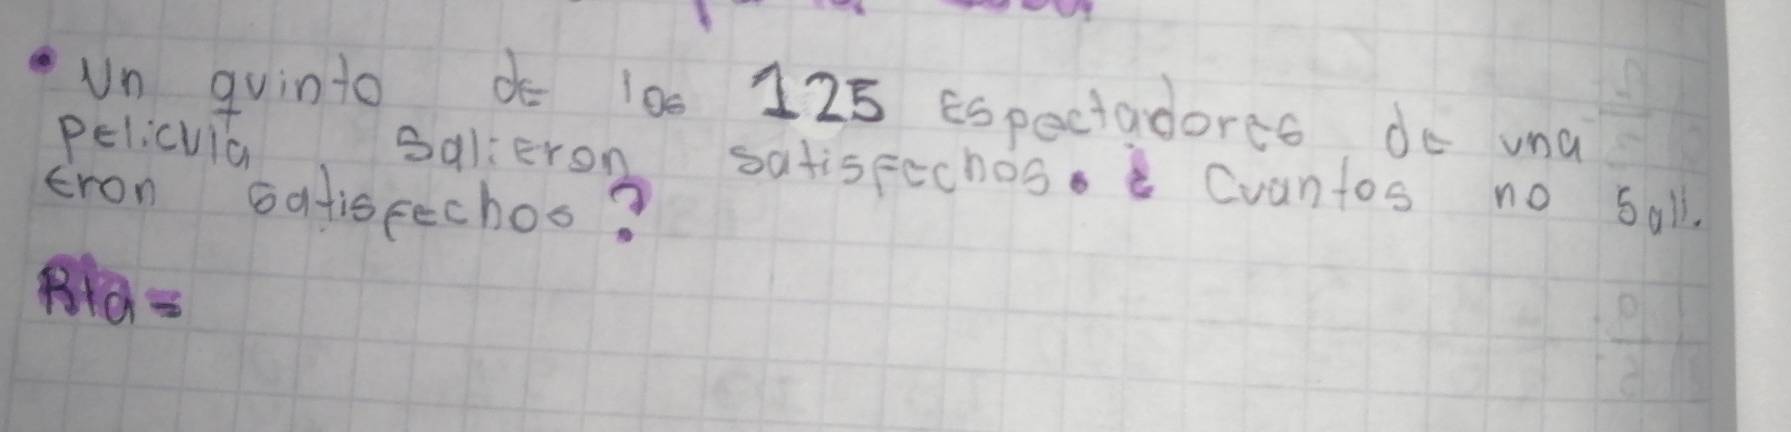 • Un quinto de los 125 Espectadores de una
Pelicula salieron satisfechos. ¿ Cuantos no Sali.
eron satisfechos?
Rta=